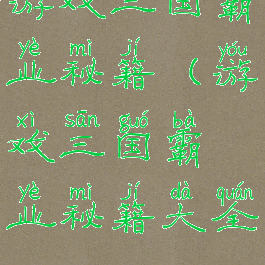 游戏三国霸
yè mì jí yóu
业秘籍(游
xì sān guó bà
戏三国霸
yè mì jí dà quán
业秘籍大全